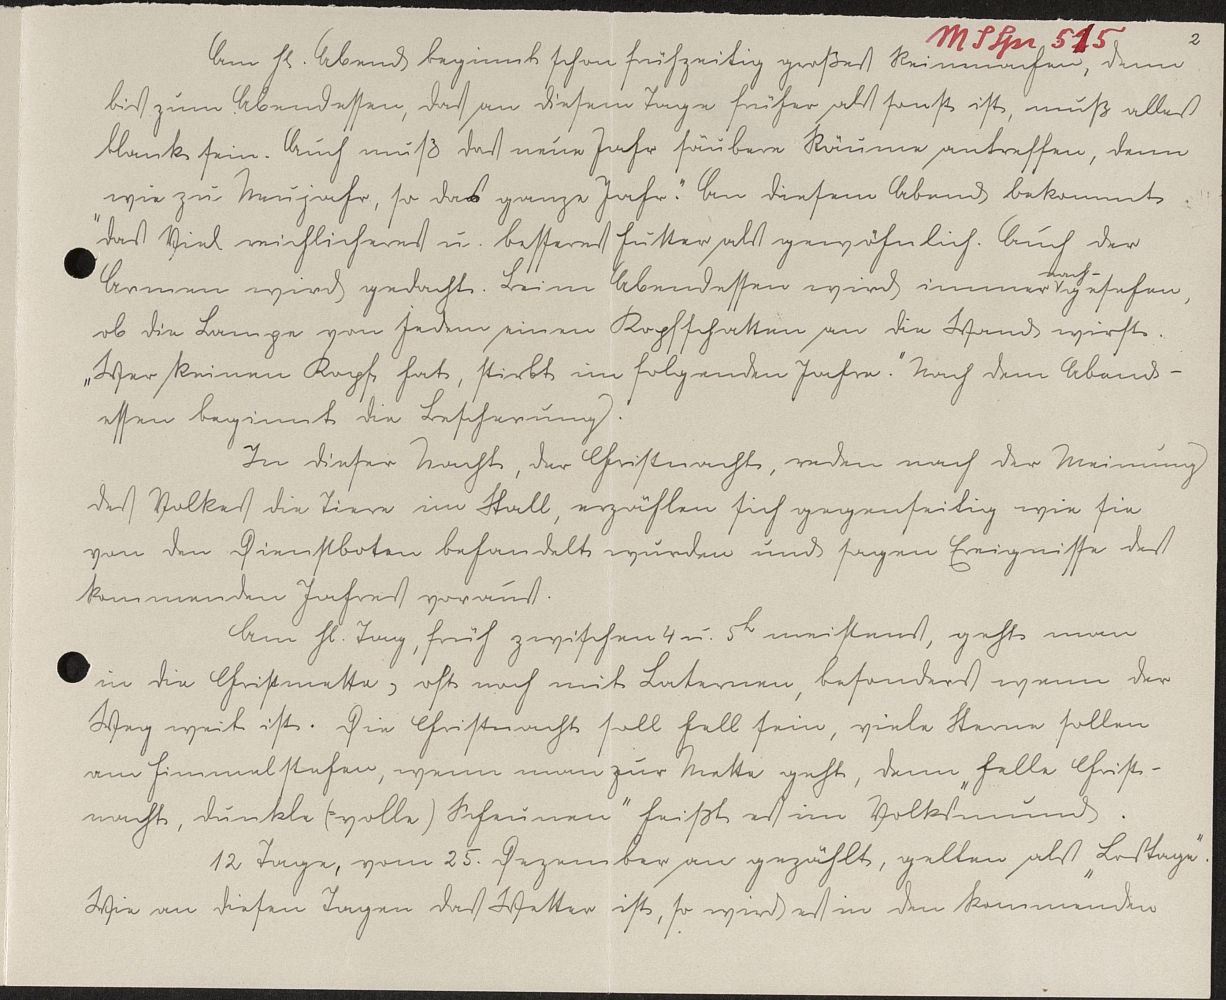 MSSpr 515
2
Am hl. Abend beginnt schon frühzeitig großes Reinmachen, denn
bis zum Abendessen, das an diesem Tage früher als sonst ist, muß alles
blank sein. Auch muß das neue Jahr saubere Räume antreffen, denn
„wie zu Neujahr, so das ganze Jahr." An diesem Abend bekommt
das Vieh reichlicheres u. besseres Futter als gewöhnlich. Auch der
Armen wird gedacht. Beim Abendessen wird immer nach-gesehen,
ob die Lampe von jedem einen Kopfschatten an die Wand wirft.
„Wer keinen Kopf hat, stirbt im folgenden Jahre." Nach dem Abend-
essen beginnt die Bescherung.
In dieser Nacht, der Christnacht, reden nach der Meinung
des Volkes die Tiere im Stall, erzählen sich gegenseitig wie sie
von den Dienstboten behandelt wurden und sagen Ereignisse des
kommenden Jahres voraus.
Am hl. Tag, früh zwischen 4 u. 5h meistens, geht man
in die Christmette, oft noch mit Laternen, besonders wenn der
Weg weit ist. Die Christnacht soll hell sein, viele Sterne sollen
am Himmel stehen, wenn man zur Mette geht, denn „helle Christ-
nacht, dunkle (=volle) Scheunen" heißt es im Volksmund.
12 Tage, vom 25. Dezember an gezählt, gelten als „Lostage".
Wie an diesen Tagen das Wetter ist, so wird es in den kommenden